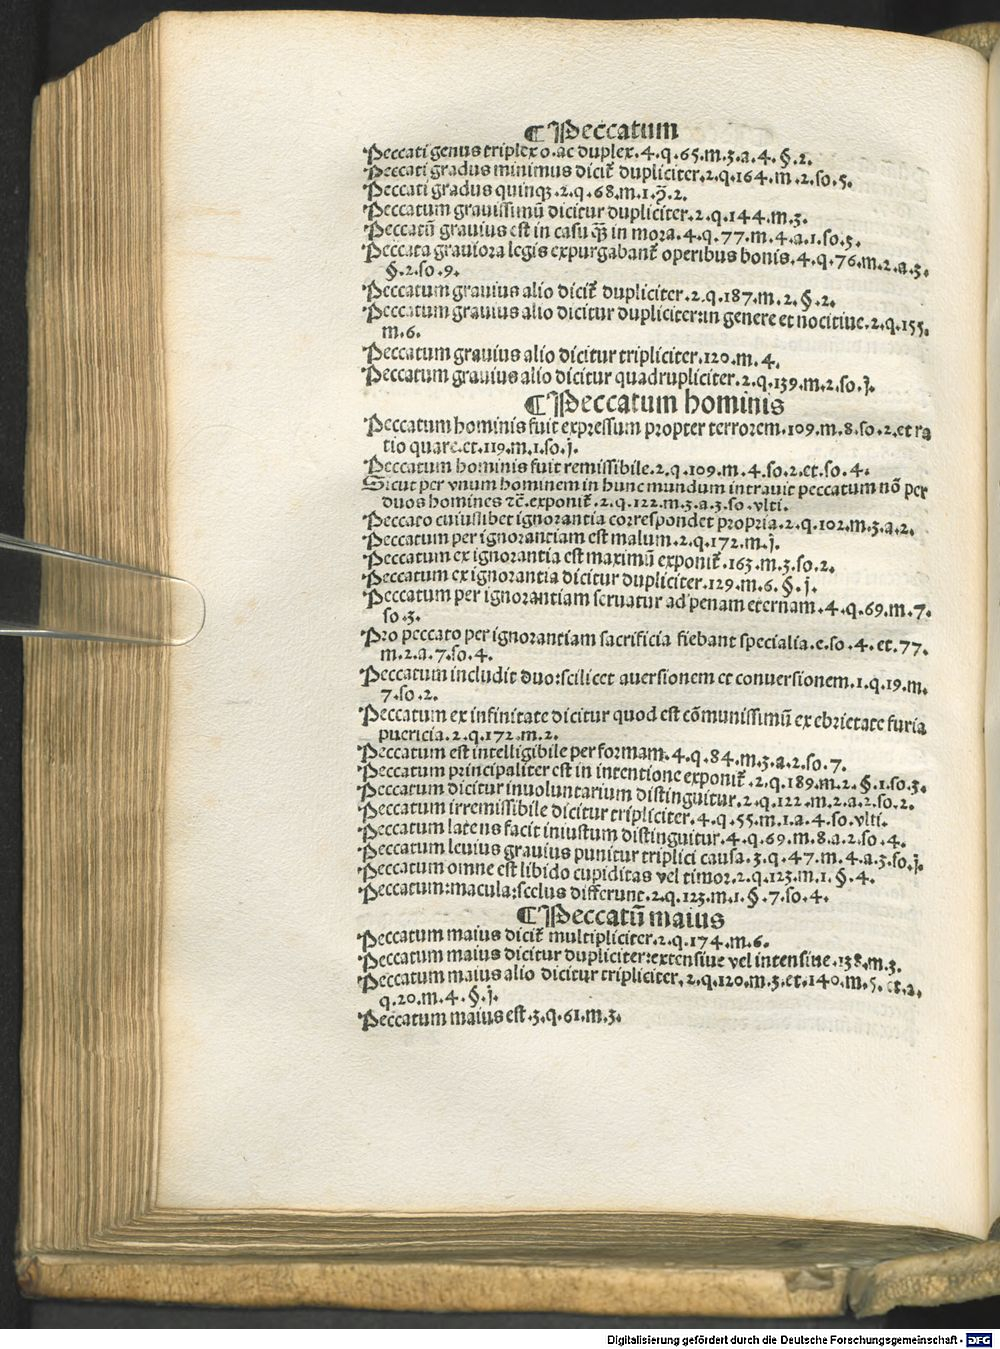 ¶ Peccatum
Peccati genus triplex o. ac duplex. 4. q. 65. m. 3. a. 4. §. 2.
Peccati gradus minimus dicit̃ dupliciter. 2. q. 164. m. 2. so. 5.
Peccati gradus quinqꝫ. 2. q. 68. m. 1. q̃. 2.
Peccatum grauissimũ dicitur dupliciter. 2. q. 144. m. 3.
Peccatũ grauius est in casu qꝫ in mora. 4. q. 77. m. 4. a. 1. so. 5.
Peccata grauiora legis expurgabant̃ operibus bonis. 4. q. 76. m. 2. a. 3.
§. 2. so. 9.
Peccatum grauius alio dicit̃ dupliciter. 2. q. 187. m. 2. §. 2.
Peccatum grauius alio dicitur dupliciter: in genere et nocitiue. 2. q. 155.
m. 6.
Peccatum grauius alio dicitur tripliciter. 120. m. 4.
Peccatum grauius alio dicitur quadrupliciter. 2. q. 139. m. 2. so. j.
¶ Peccatum hominis
Peccatum hominis fuit expressum propter terrorem. 109. m. 8. so. 2. et ra
tio quare. et. 119. m. 1. so. j.
Peccatum hominis fuit remissibile. 2. q. 109. m. 4. so. 2. et. so. 4.
Sicut per vnum hominem in hunc mundum intrauit peccatum nõ per
duos homines ⁊c̃. exponit̃. 2. q. 122. m. 3. a. 3. so. vlti.
Peccato cuiuslibet ignorantia correspondet propria. 2. q. 102. m. 3. a. 2.
Peccatum per ignorantiam est malum. 2. q. 172. m. j.
Peccatum ex ignorantia est maximũ exponit̃. 163. m. 3. so. 2.
Peccatum ex ignorantia dicitur dupliciter. 129. m. 6. §. j.
Peccatum per ignorantiam seruatur ad penam eternam. 4. q. 69. m. 7.
so. 3.
Pro peccato per ignorantiam sacrificia fiebant specialia. e. so. 4. et. 77.
m. 2. a. 7. so. 4.
Peccatum includit duo: scilicet auersionem et conuersionem. 1. q. 19. m.
7. so. 2.
Peccatum ex infinitate dicitur quod est cõmunissimũ ex ebrietate furia
puericia. 2. q. 172. m. 2.
Peccatum est intelligibile per formam. 4. q. 84. m. 3. a. 2. so. 7.
Peccatum principaliter est in intentione exponit̃. 2. q. 189. m. 2. §. 1. so. 3.
Peccatum dicitur inuoluntarium distinguitur. 2. q. 122. m. 2. a. 2. so. 2.
Peccatum irremissibile dicitur tripliciter. 4. q. 55. m. 1. a. 4. so. vlti.
Peccatum latens facit iniustum distinguitur. 4. q. 69. m. 8. a. 2. so. 4.
Peccatum leuius grauius punitur triplici causa. 3. q. 47. m. 4. a. 3. so. j.
Peccatum omne est libido cupiditas vel timor. 2. q. 123. m. 1. §. 4.
Peccatum: macula: scelus differunt. 2. q. 123. m. 1. §. 7. so. 4.
¶ Peccatũ maius
Peccatum maius dicit̃ multipliciter. 2. q. 174. m. 6.
Peccatum maius dicitur dupliciter: extensiue vel intensiue. 138. m. 3.
Peccatum maius alio dicitur tripliciter. 2. q. 120. m. 3. et. 140. m. 5. et. 2.
q. 20. m. 4. §. j.
Peccatum maius est. 3. q. 61. m. 3.
Digitalisierung gefördert durch die Deutsche Forschungsgemeinschaft - DFG